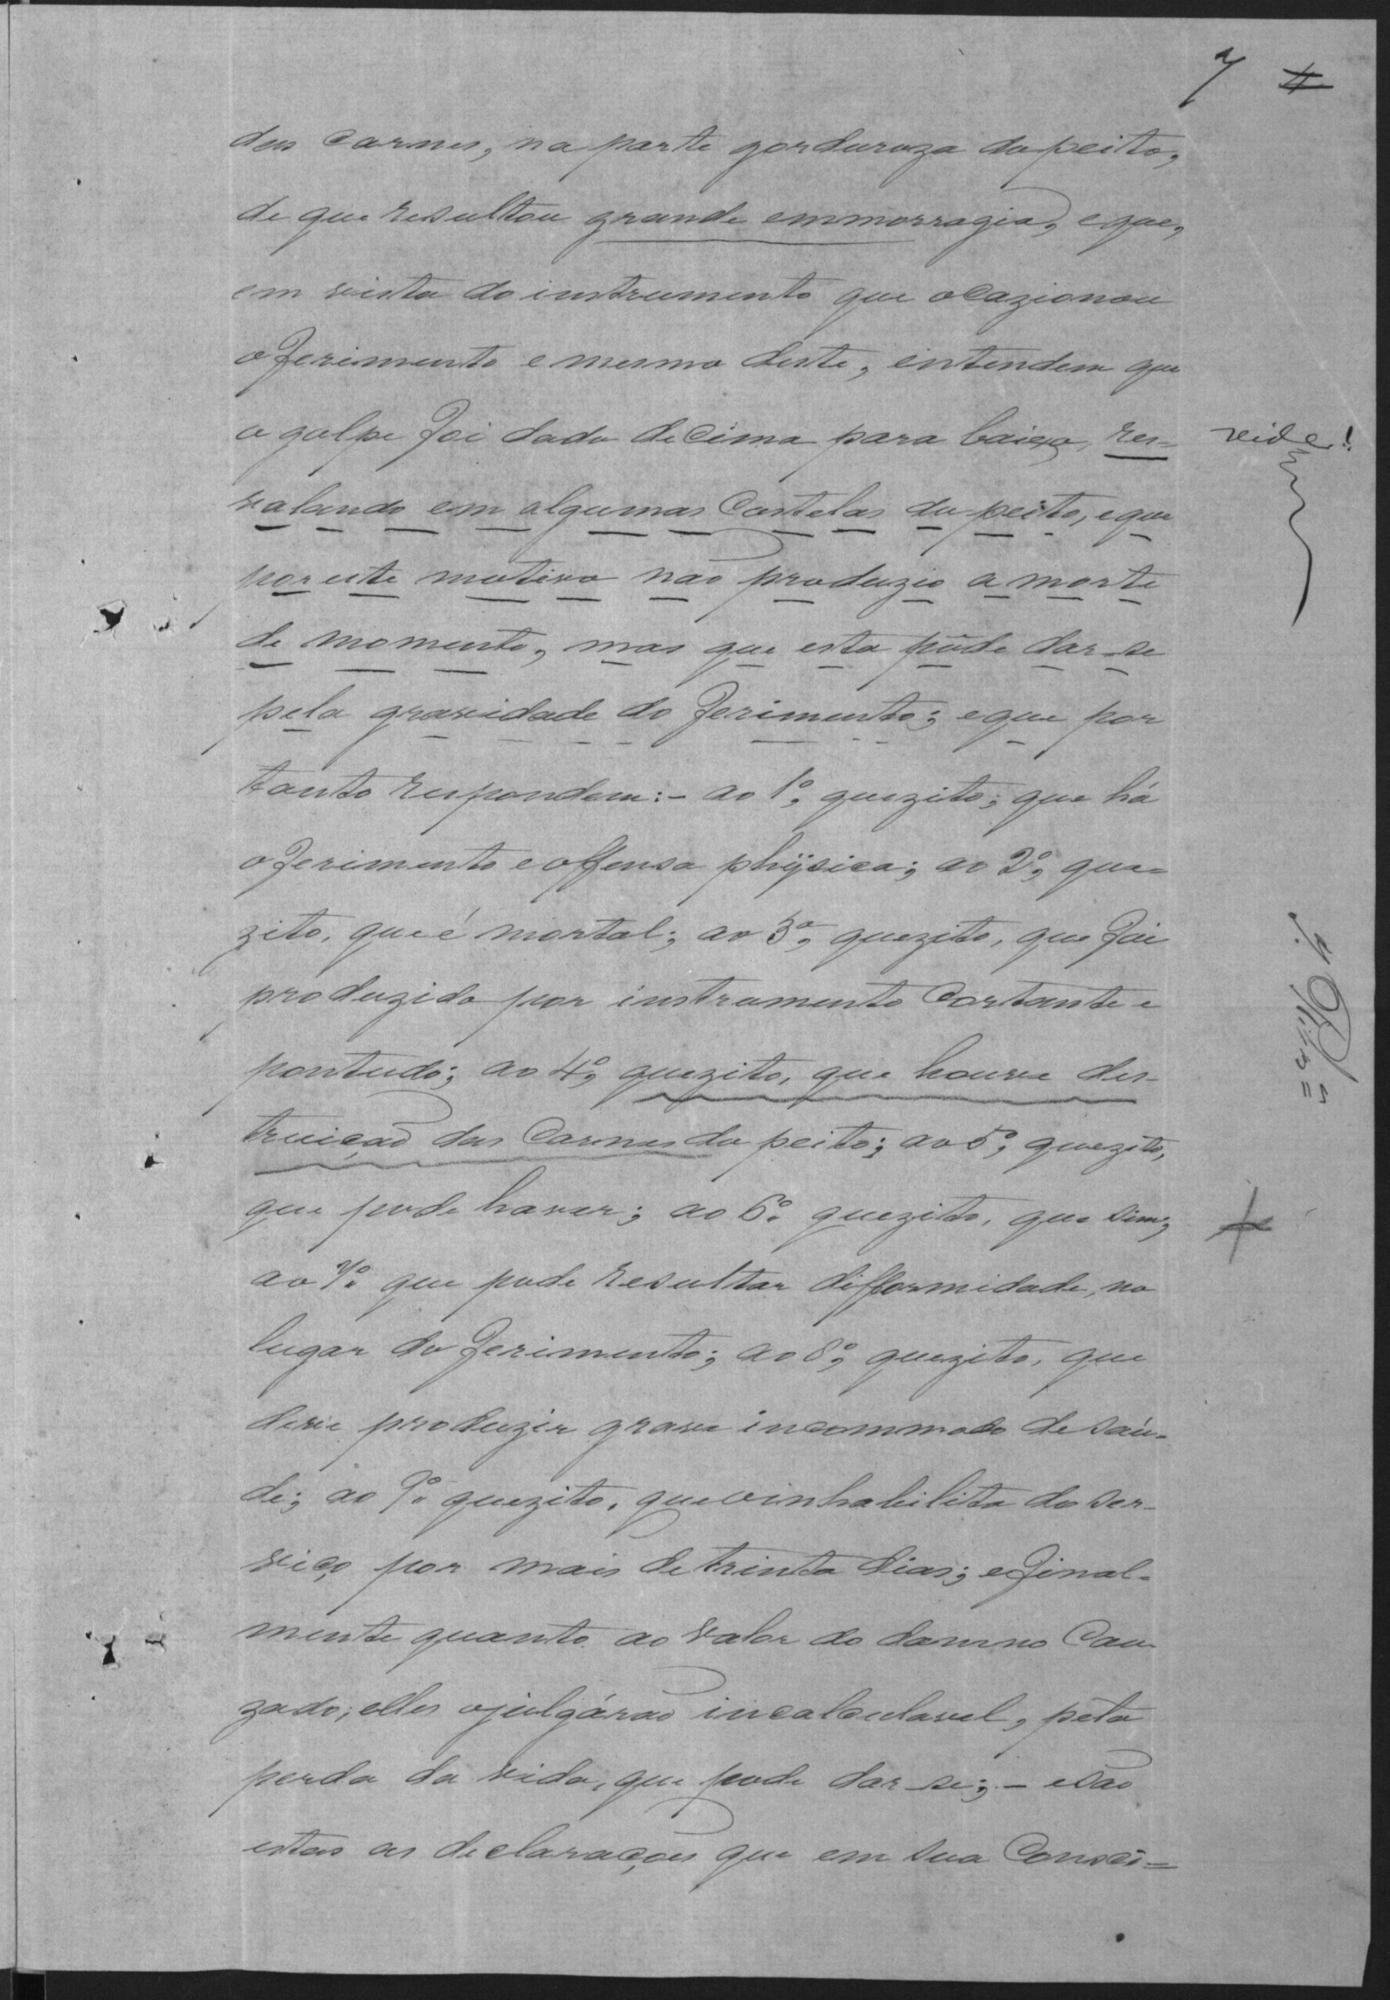 7 4
das carnes, na parte gorduroza do peito,
de que resultou grande emmorragia, e que,
em vista do instrumento que ocazionou
o ferimento e mesmo deste, entendem que
o golpe foi dado de cima para baixo, res-
vide!
valando em algumas costelas do peito, e que
por este motivo não produzio a morte
de momento, mas que esta póde dar-se
pela gravidade do ferimento; e que por
tanto respondem:- ao 1º, quezito; que há
o ferimento e offensa phÿsica; ao 2º, que-
zito, que é mortal; ao 3º, quezito, que foi
produzido por instrumento cortante e
pontudo; ao 4º, quezito, que houve des-
truição das carnes do peito; ao 5º, quezito,
que pode haver; ao 6º. quezito, que sim;
ao 7º. que pode resultar difformidade, no
lugar do ferimento; ao 8º, quezito, que
deve produzir grave incommodo de saú-
de; ao 9º. quezito, que o inhabilita do ser-
viço por mais de trinta dias; e final-
mente quanto ao valor do damno cau-
zado; elles o julgárão incalculavel, pela
perda da vida, que pode dar-se; - e são
estas as declarações que em sua consci=